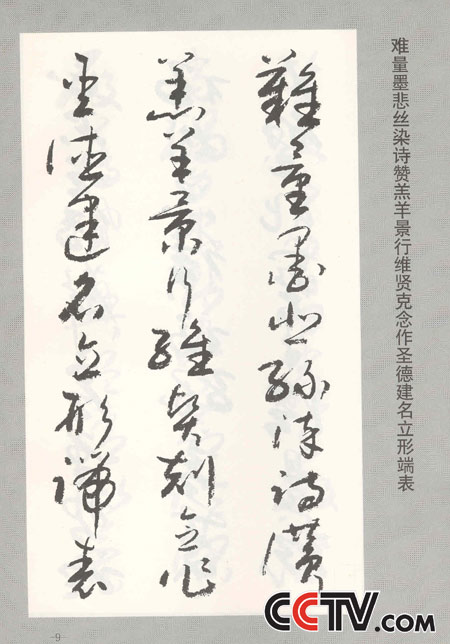 难量墨悲丝染诗赞羔羊景行维贤克念作圣德建名立形端表
難量墨悲絲染詩讚
羔羊景行維賢剋念作
聖德建名立形端表
-9
CCTV.com